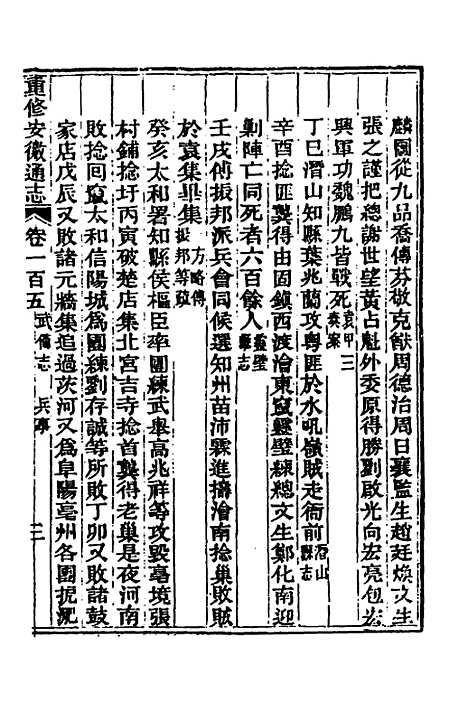 麟圖從九品喬傳芬敬克猷周德治周日襄監生趙廷煥文生
張之謹把總謝世望黃占魁外委原得勝劉啟光向宏亮包占
興軍功魏鵬九皆戰死袁甲三奏案
丁巳潛山知縣葉兆蘭攻粵匪於水吼嶺賊走衙前潛山縣志
辛酉捻匪龔得由固鎮西渡澮東竄靈璧練總文生鄭化南迎
剿陣亡同死者六百餘人靈璧縣志
壬戌傅振邦派兵會同候選知州苗沛霖進擣澮南捻巢敗賊
於袁集畢集方略傅振邦等疏
癸亥太和署知縣侯樞臣率團練武舉高兆祥等攻毀亳境張
村鋪捻圩丙寅破楚店集北宮吉寺捻首龔得老巢是夜河南
敗捻回竄太和信陽城為團練劉存誠等所敗丁卯又敗諸鼓
家店戊辰又敗諸元牆集追過茨河又為阜陽亳州各團扼㲼
重修安徽通志 卷一百五 武備志 兵事 三